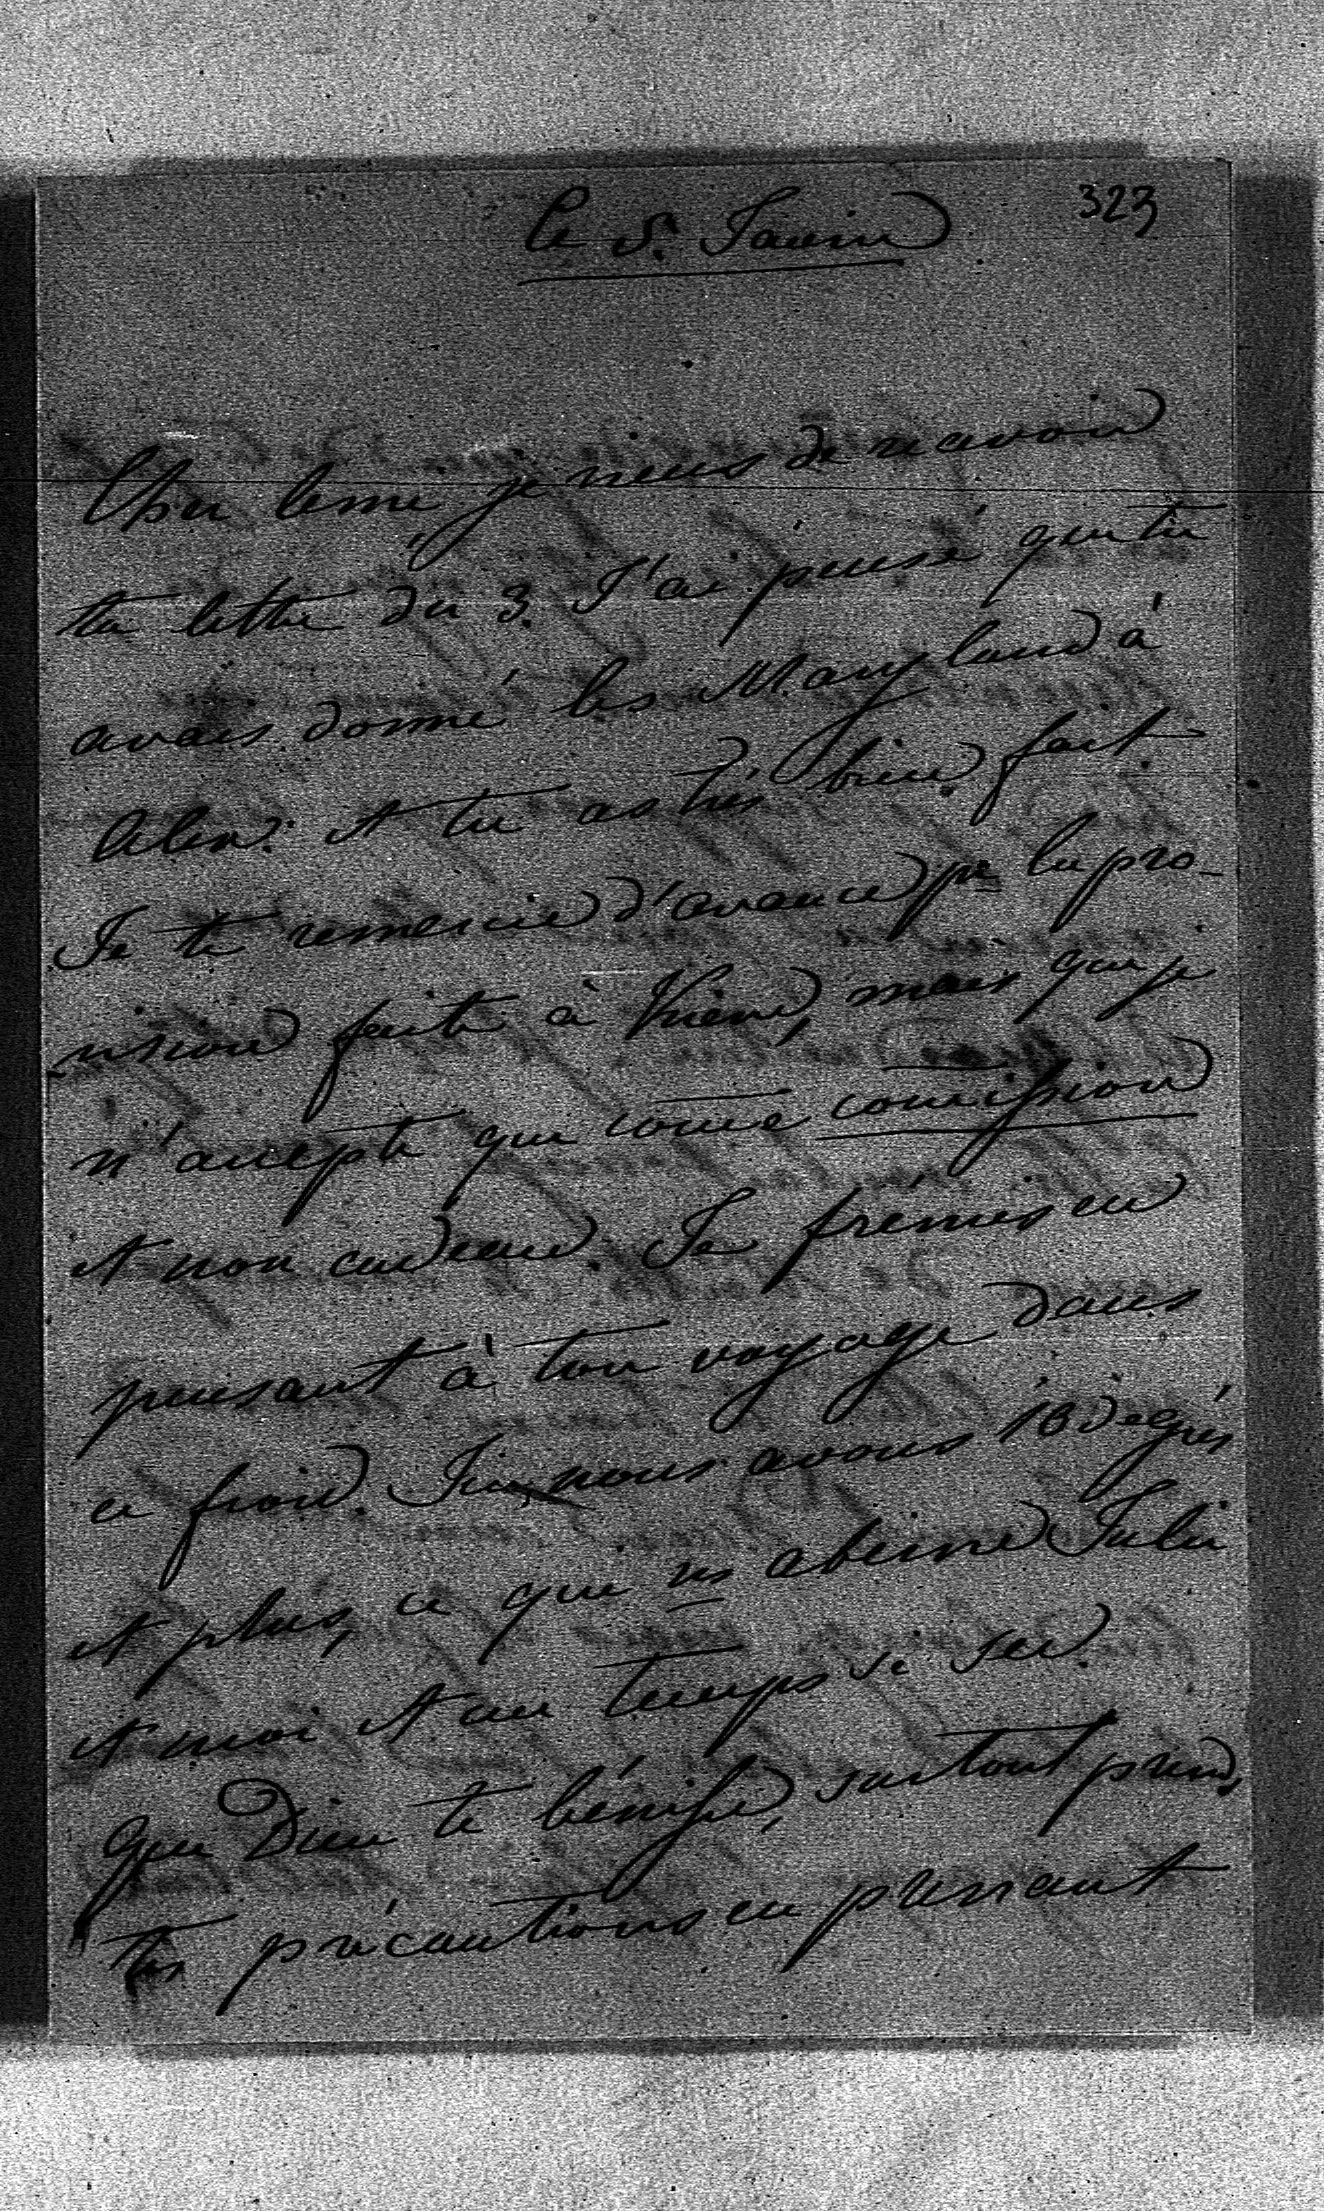 323
le 5. Janvier
Cher ami je viens de ravoir
ta lettre du 3. J'ai pensé que tu
avais donné les Maryland à
Alex: et tu as très bien fait
Je te remercie d'avance pr la pro-
vision faite à Viene, mais que je
n'accepte que come comission
et non cadeau. Je frémis en
pensant à ton voyage dans
ce froid. Ici nous avons 18 degrés
et plus, ce qui ns abime Julie
et moi et un temps si sec.
que Dieu te bénisse, surtout prend
tes précautions en passant